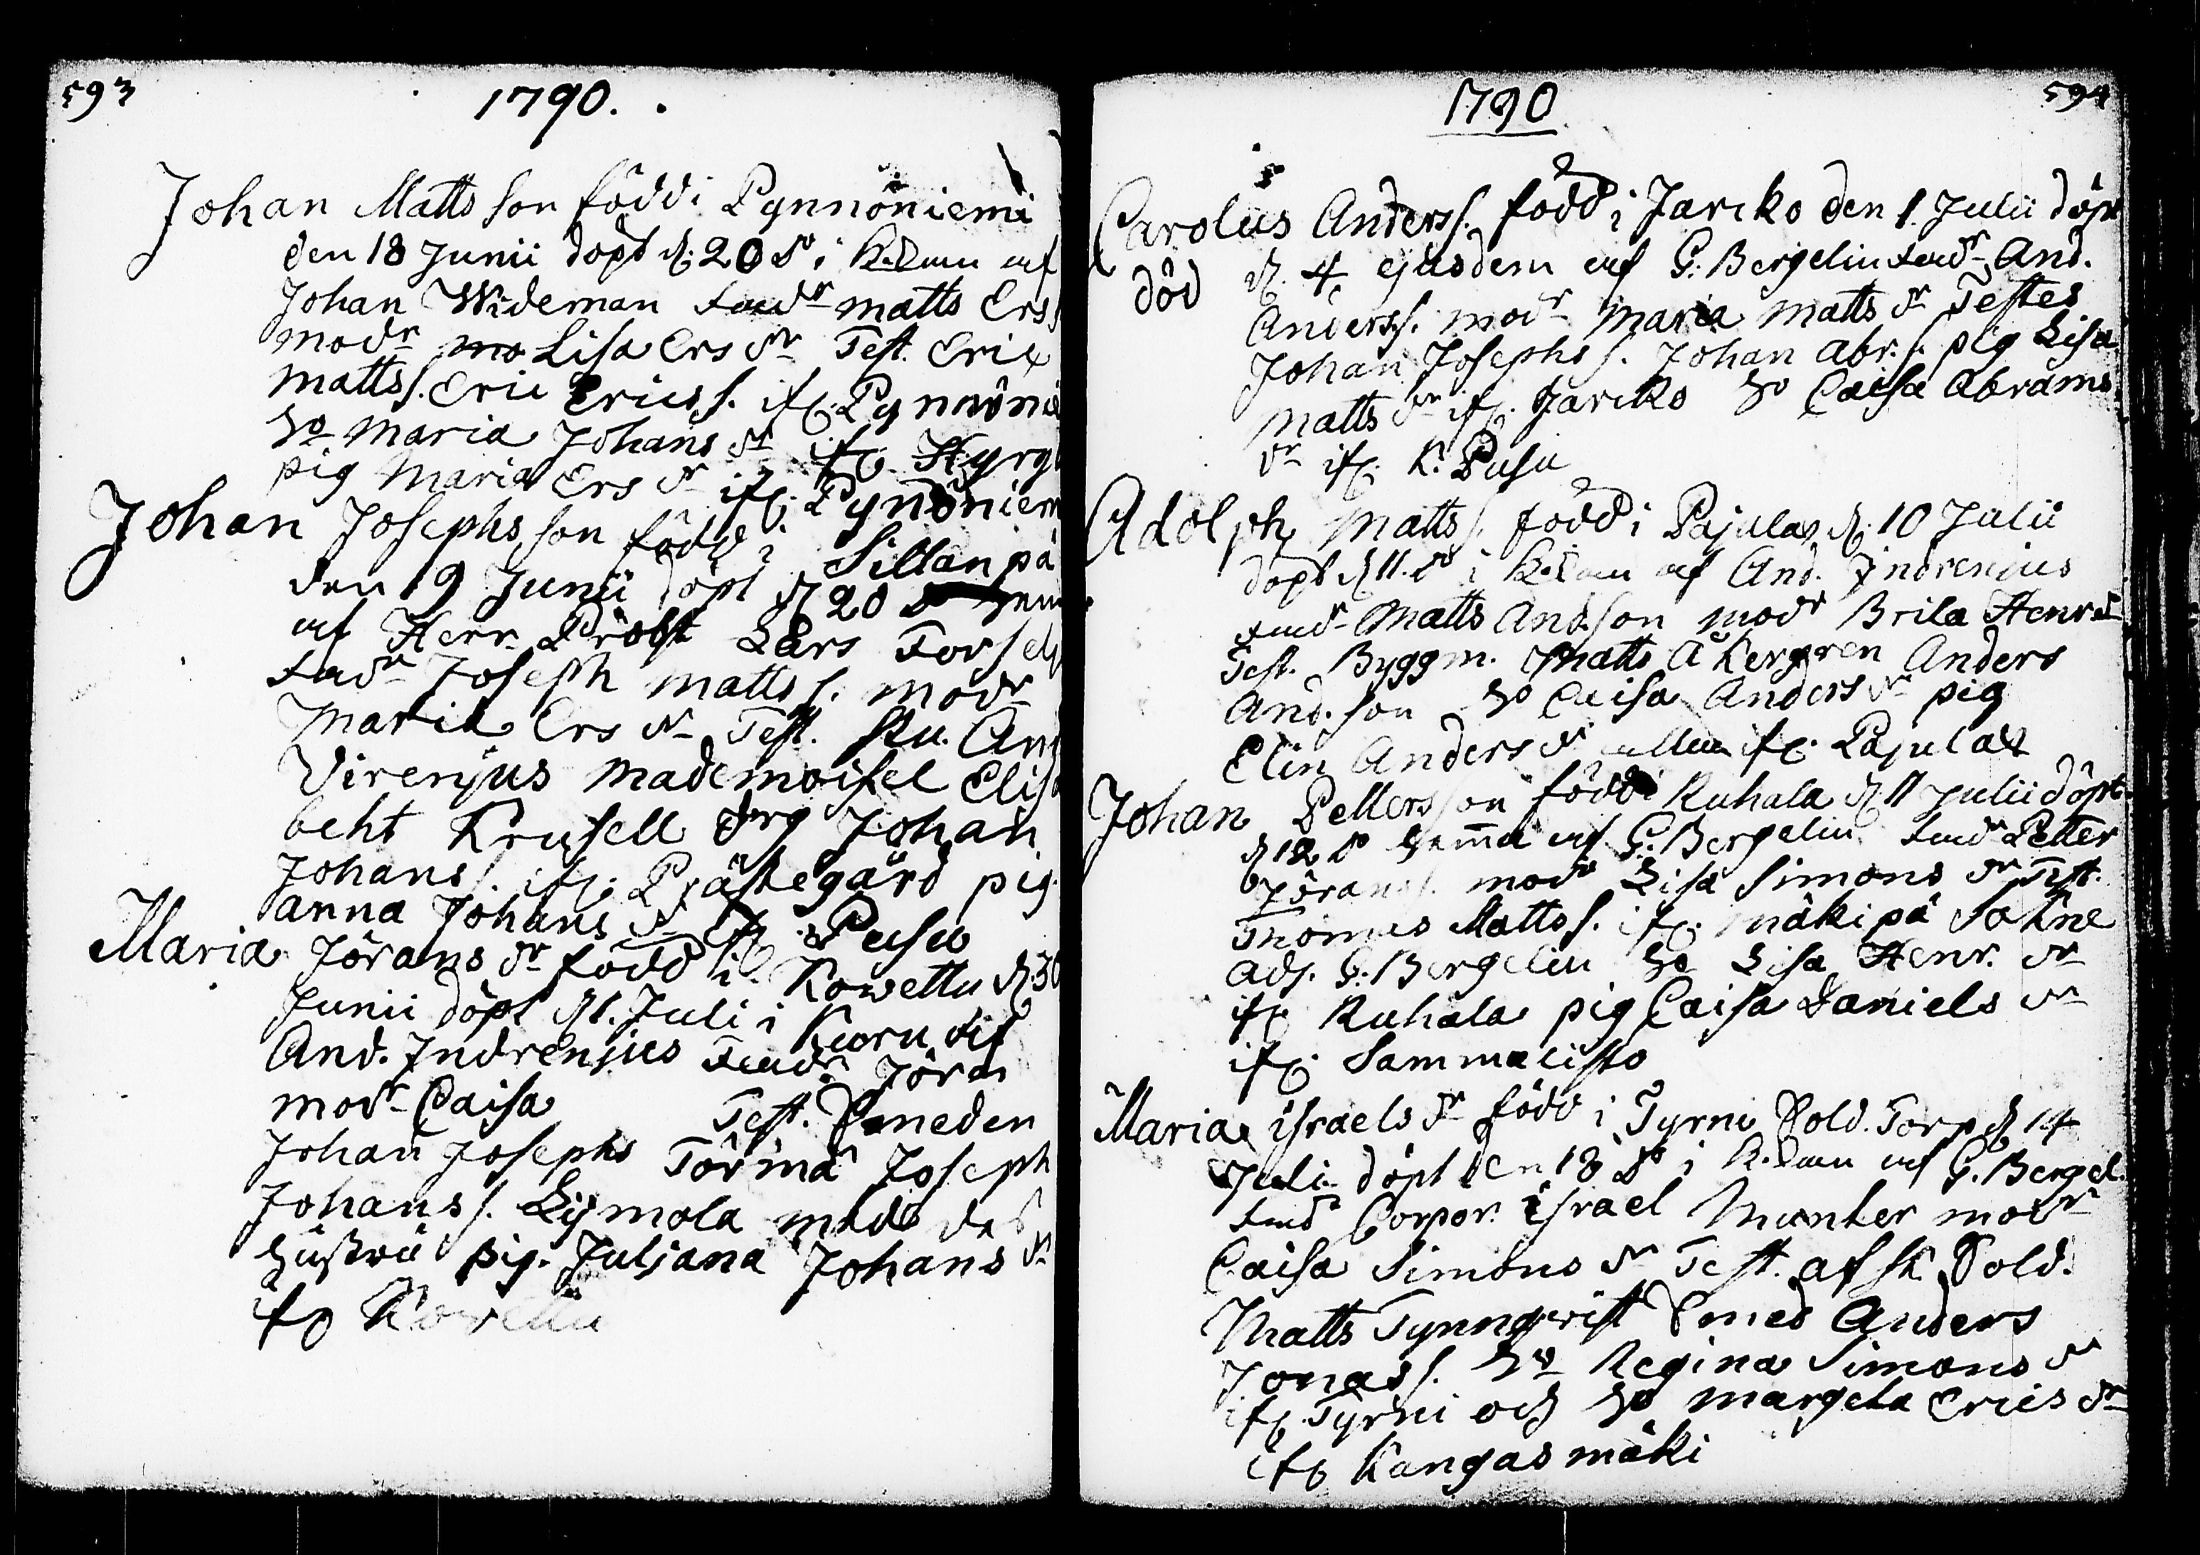 593
1790.
Johan Matts son född i Pynnöniemi
den 18 Junii döpt d. 20 do i K.Laau af
Johan Wideman Fadr Matts Ers s.
modr Lisa Ers dr Test. Eric
Matts s. Eric Erics s. ifr. Pynnöni
ho Maria Johans dr ifr. Kyrö
pig Maria Ers dr ifr. Pynöniem
Johan Josephs son född i Sillanpä
den 19 Junii döpt d 20 hem
af Herr Probst Lars Forsel
Fadr Joseph Matts s. modr
Maria Ers dr Test. Stu. And
Virenjus Mademoisel Elisa
beht Krusell drg Johan
Johans s. ifr. Prästegård pig.
Anna Johans dr ifr. Pusu
Maria Jörans dr född i Kowettu d 30
Junii döpt d 1. Juli i Kuru af
And. Indrenjus Fadr. Jöran
modr Caisa Test. Smeden
Johan Josephs Törmä Joseph
Johans s. Lijmola med des
hustru pig. Juljana Johans dr
ifr Kovettu
594
1790
Carolus Anders s. född i Jarcko den 1 Julii döpt
död d. 4 ejusdem af G. Bergelin Fadr And.
Anders s. modr Maria Matts dr Testes
Johan Josephs s. Johan Abr. s. pig Lisa
Matts dr ifr. Jarcko ho Caisa Abrams
dr ifr. K. Pusu
Adolph Matts s. född i Pajulax d. 10 Julii
döpt d 11. do i K.Laau af And. Indrenius
Fadr Matts And.son modr Brita Henr dr
Test. Byggm. Matts Åkergren Anders
And. son ho Caisa Anders dr pig
Elin Anders dr alla ifr. Pajulax
Johan Petters son född i Ruhala d 11 Julii döpt
d 12 do hemma af G. Bergelin Fadr Petter
Jörans s. modr Lisa Simons dr Test.
Thomas Matts s. ifr. Mäkipä Sokne
adj. G. Bergelin ho Lisa Henr. dr
ifr Ruhala pig Caisa Daniels dr
ifr. Sammalisto
Maria Israels dr född i Tyrni Sold. Torp d 14
Juli döpt den 18 do i K.Laau af G. Bergel.
Fadr Corpor. Israel Munter modr
Caisa Simons dr Test. afsk. Sold.
Matts Tynnqvist Smed Anders
Jonas s. ho Regina Simons dr
ifr. Tyrni och ho Margeta Erics dr
ifr Kangasmäki